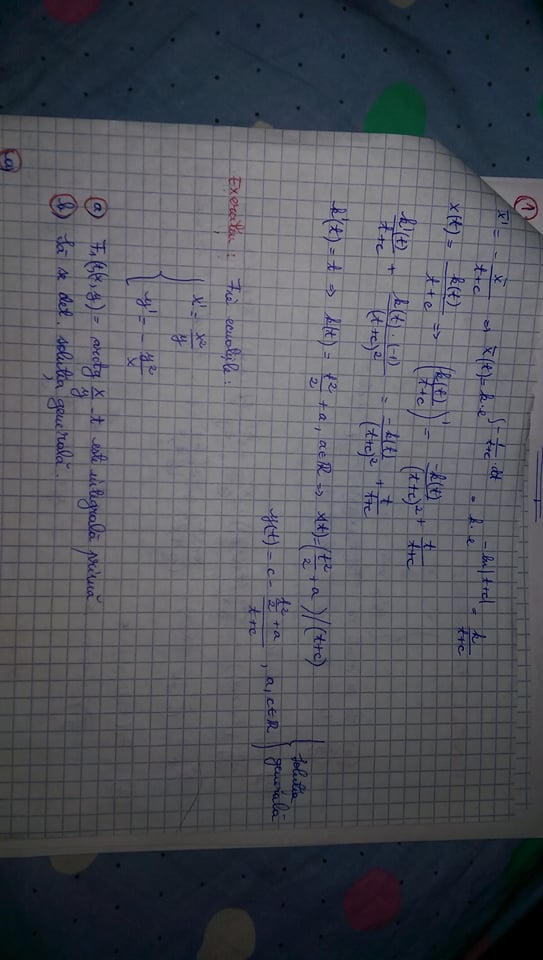 1
x̄' = - x̄/(t+c) ⇒ x̄(t) = k·e^(∫ - 1/(t+c) dt) = k·e^(-ln|t+c|) = k/(t+c)
x(t) = k(t)/(t+c) ⇒ (k(t)/(t+c))' = -k(t)/(t+c)² + t/(t+c)
k'(t)/(t+c) + k(t)·(-1)/(t+c)² = -k(t)/(t+c)² + t/(t+c)
k'(t) = t ⇒ k(t) = t²/2 + a, a∈ℝ ⇒ x(t) = (t²/2 + a)/(t+c)
y(t) = c - (t²/2 + a)/(t+c), a, c∈ℝ } soluția generală
Exercițiu: Fie ecuațiile:
{ x' = x²/y
y' = - y²/x
a) F₁(t,(x,y) = arctg x/y - t este integrală primă
b) Să se det. soluția generală.
a)